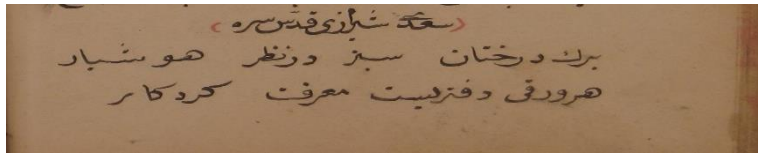 (سعدی شیرازی قدس سره)
برك درختان سبز در نظر هوشیار
هر ورقی دفتریست معرفت کردکار